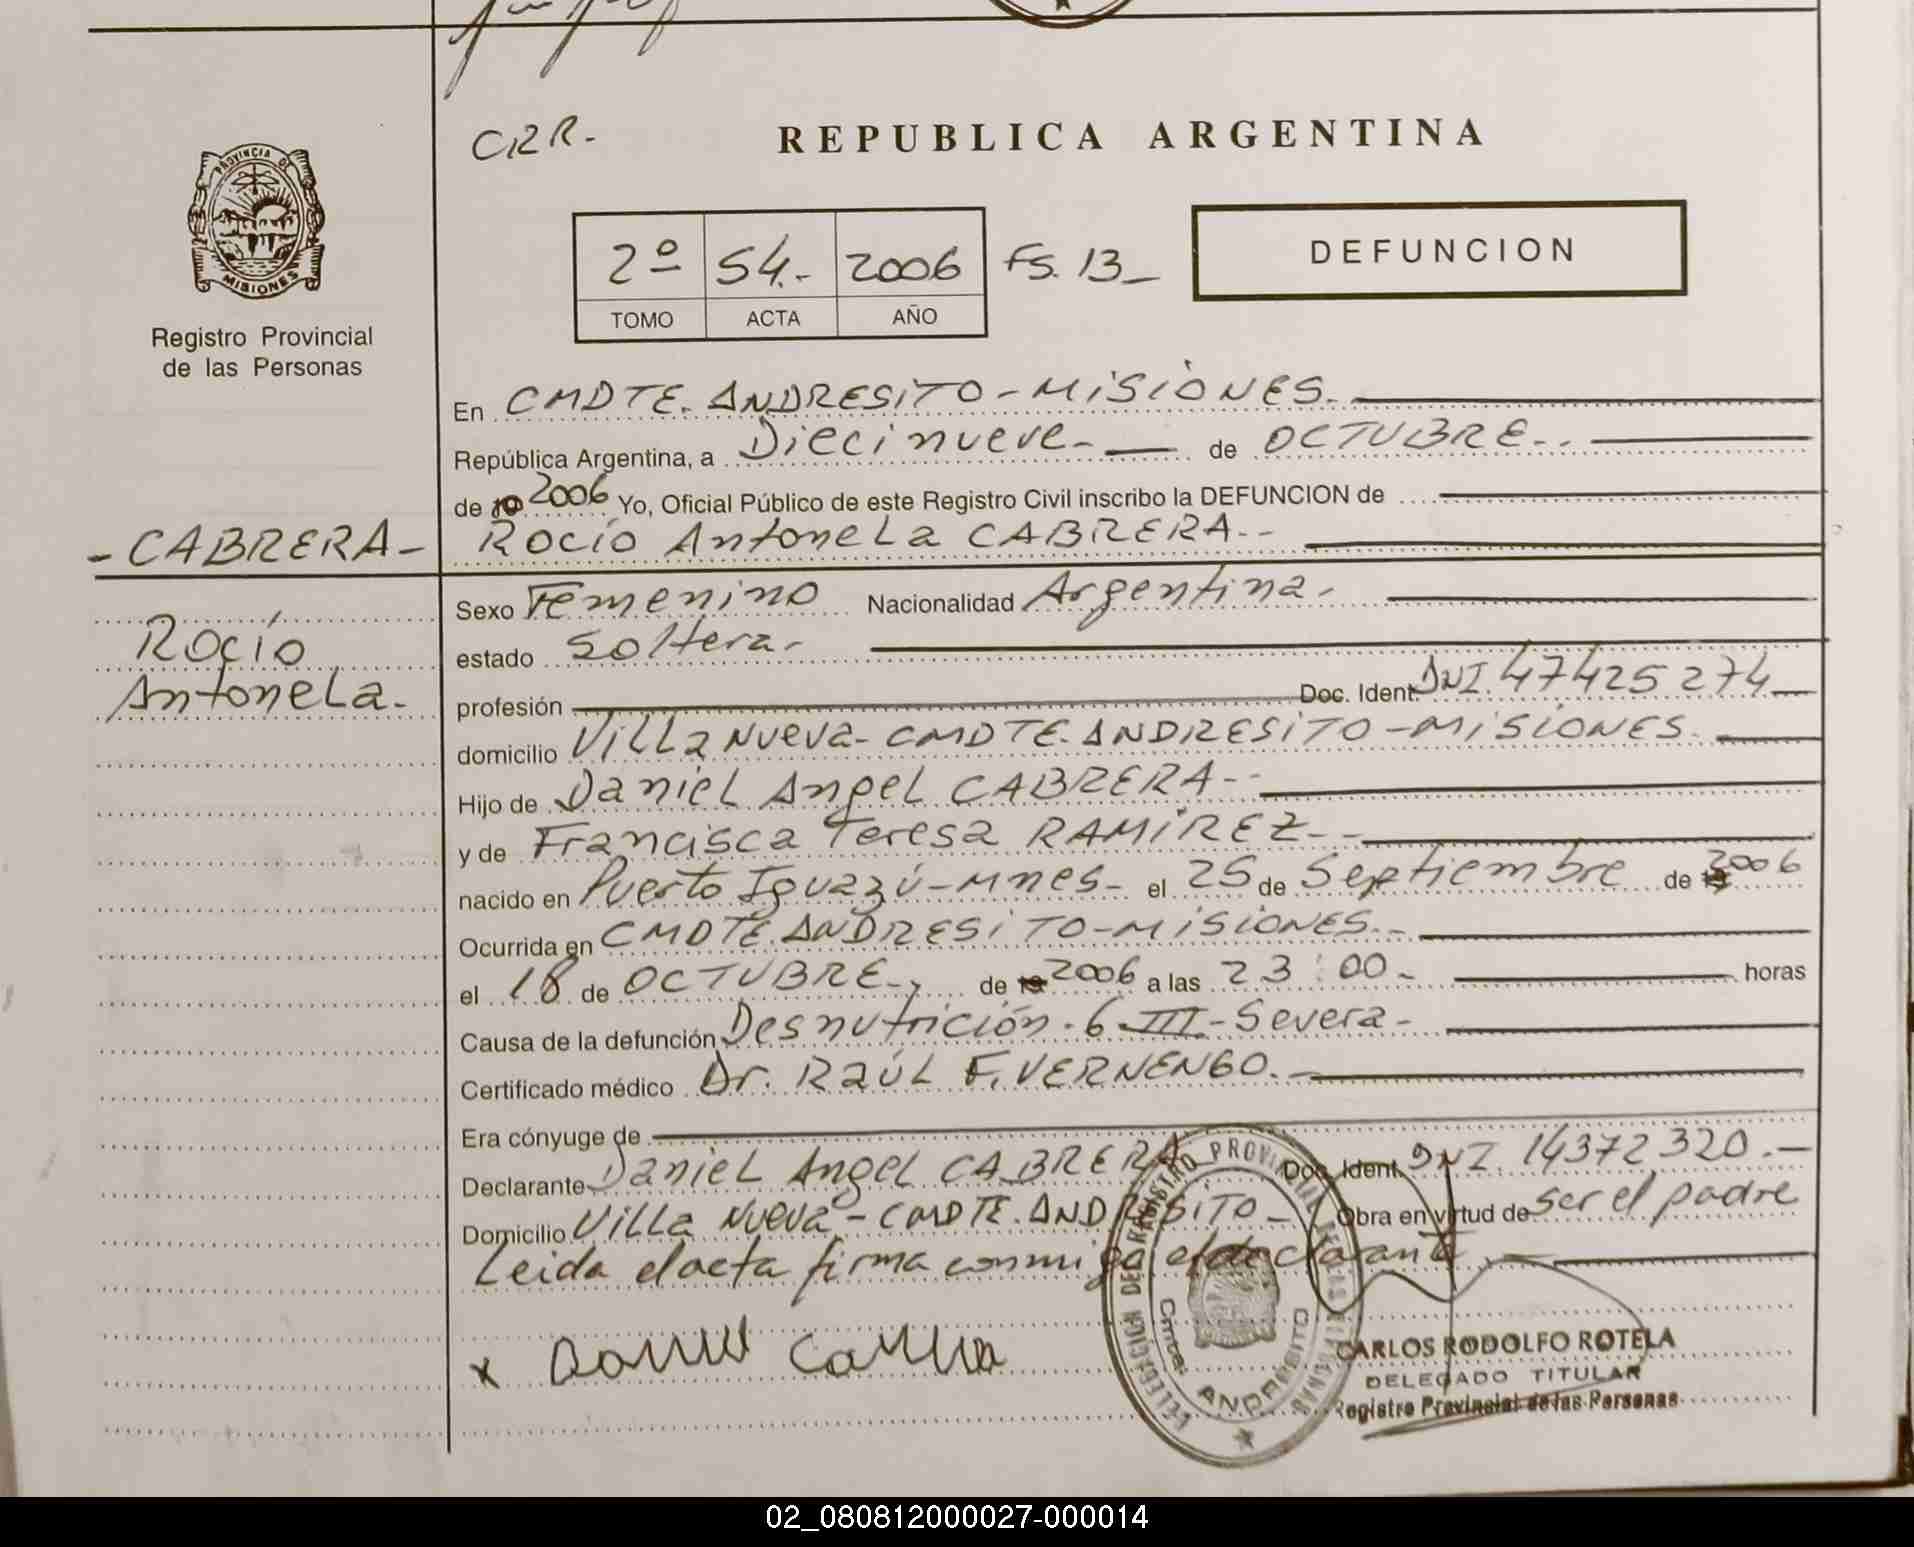 CRR.-
REPUBLICA ARGENTINA
PROVINCIA DE
MISIONES
Registro Provincial
de las Personas
2º 54.- 2006 FS. 13_
TOMO ACTA AÑO
DEFUNCION
En CMDTE. ANDRESITO - MISIONES.
República Argentina, a Diecinueve - de OCTUBRE..
de 2006 Yo, Oficial Público de este Registro Civil inscribo la DEFUNCION de
- CABRERA - Rocío Antonela CABRERA--
Rocío
Antonela.
Sexo Femenino Nacionalidad Argentina.
estado Soltera.
profesión Doc. Ident. DNI. 47425274
domicilio Villa Nueva - CMDTE. ANDRESITO - MISIONES.
Hijo de Daniel Angel CABRERA--
y de Francisca Teresa RAMÍREZ--
nacido en Puerto Iguazú - Mnes - el 25 de Septiembre de 2006
Ocurrida en CMDTE. ANDRESITO - MISIONES.
el 18 de OCTUBRE., de 2006 a las 23:00. horas
Causa de la defunción Desnutrición. 6 III - Severa -
Certificado médico Dr. RAÚL F. VERNENGO.
Era cónyuge de
Declarante Daniel Angel CABRERA Doc. Ident. DNI. 14372320.
Domicilio Villa Nueva - CMDTE. ANDRESITO - Obra en virtud de ser el padre
Leida el acta firma conmigo el declarante
x Daniel Cabrera
DELEGACION DEL REGISTRO PROVINCIAL DE LAS PERSONAS
Cmte. ANDRESITO
CARLOS RODOLFO ROTELA
DELEGADO TITULAR
Registro Provincial de las Personas
02_080812000027-000014